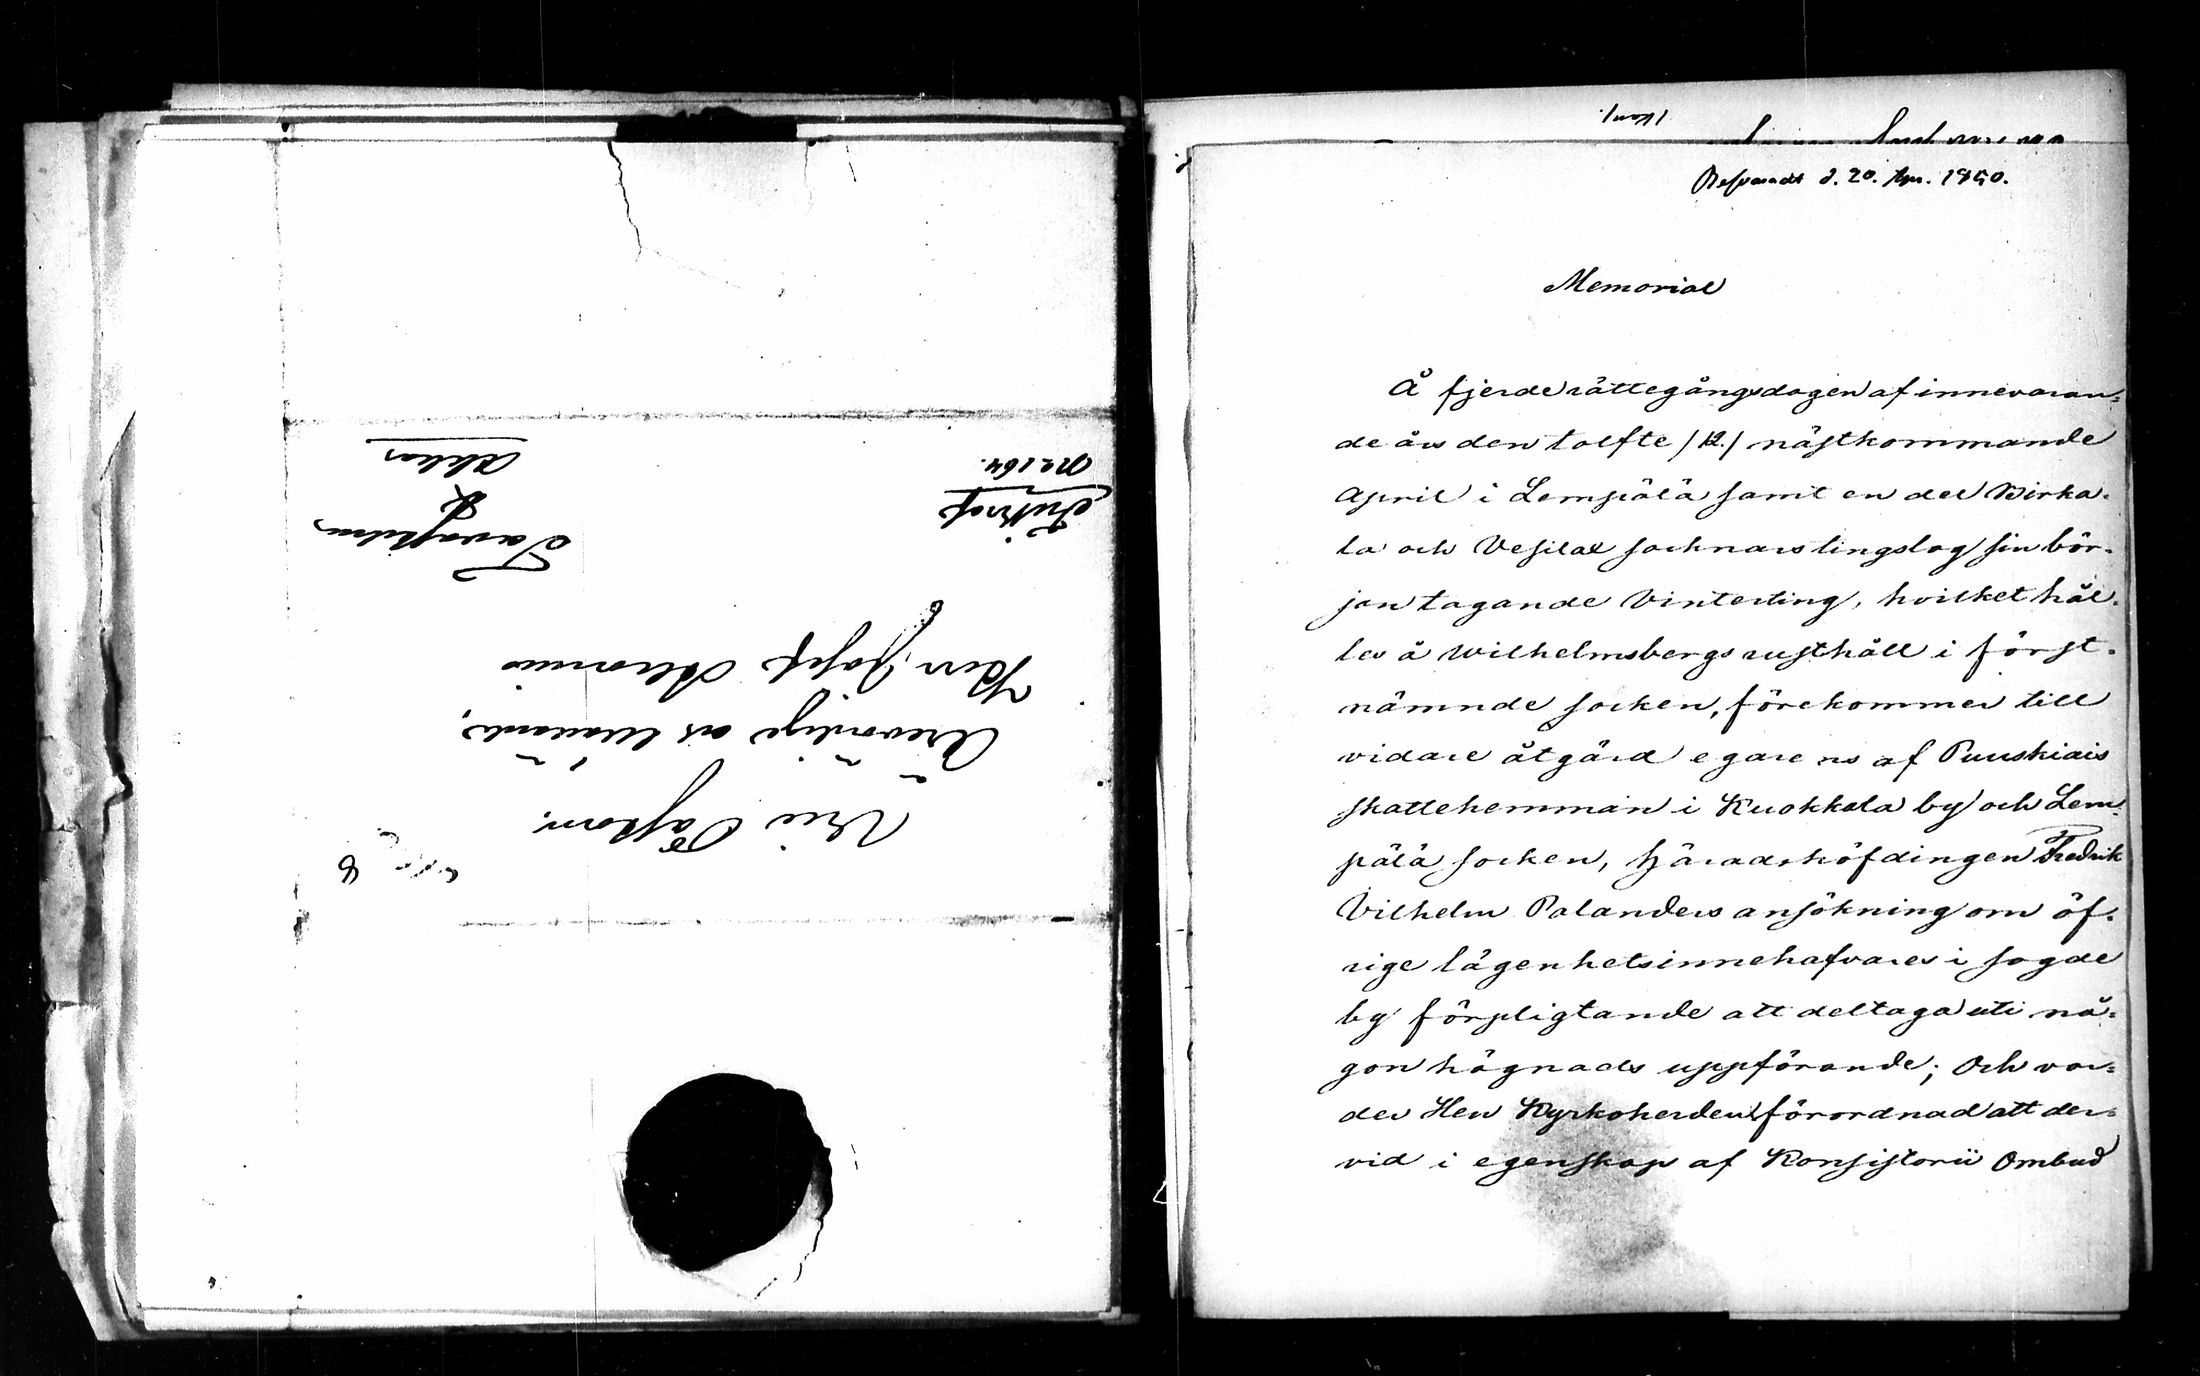 Tavastehus
&
Akkas
Fritt bref
No 164.
Vice Pastorn
Ärevördige och Vällärde,
Herr Josef
Besvaradt d. 20. Apr. 1850.
Memorial
Å fjerde rättegångsdagen af innevaran-
de års den tolfte /12./ nästkommande
April i Lempälä samt en del Birka-
la och Vesilax socknars tingslag sin bör-
jan tagande Vinterting, hvilket hål-
les å Wilhelmsbergs rusthåll i först-
nämnde socken, förekommer till
vidare åtgärd egarens af Puuskiais
skattehemman i Kuokkala by och Lem-
pälä socken, Häradshöfdingen Fredrik
Vilhelm Palanders ansökning om öf-
rige lägenhetsinnehafvares i sagde
by förpligtande att deltaga uti nå-
gon hägnads uppförande; Och var-
der Herr Kyrkoherden förordnad att der-
vid i egenskap af Konsistorii Ombud